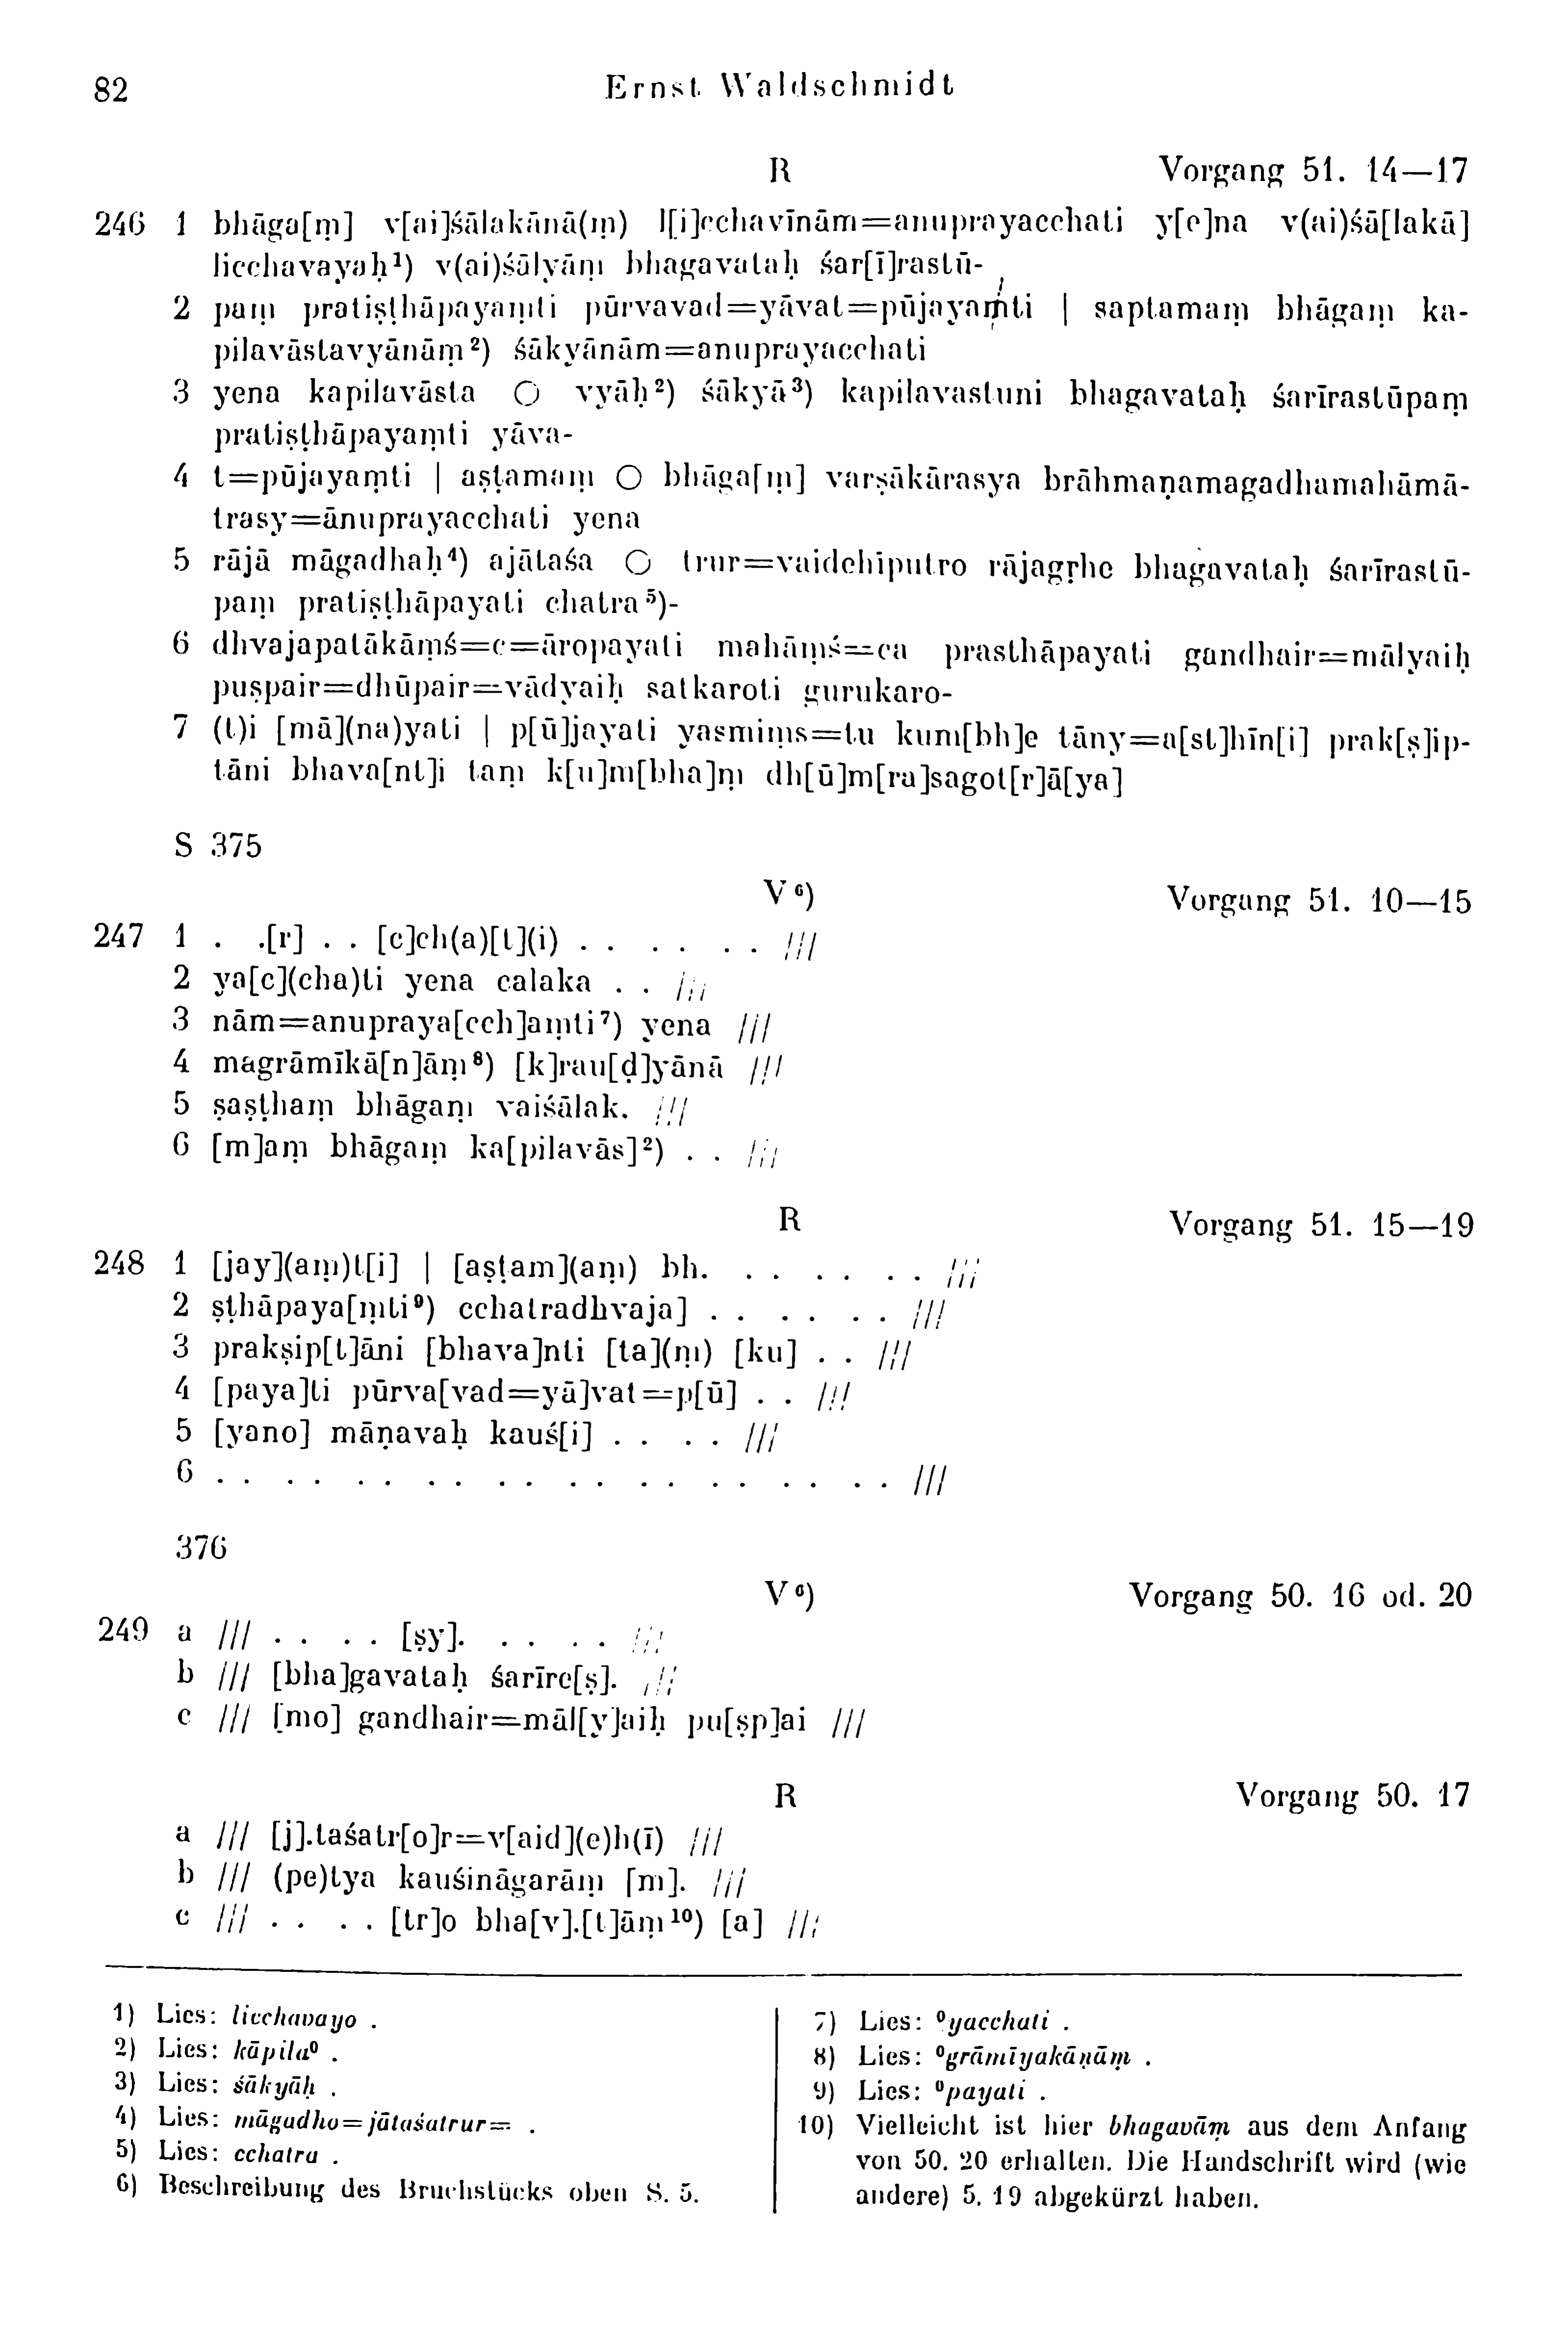 82 Ernst Waldschmidt
R Vorgang 51. 14—17
246 1 bhāga[ṃ] v[ai]śālakānā(ṃ) l[i]cchavīnām=anuprayacchati y[e]na v(ai)śā[lakā]
licchavayaḥ¹) v(ai)śālyāṃ bhagavataḥ śar[ī]rastū-
2 paṃ pratiṣṭhāpayaṃti pūrvavad=yāvat=pūjayaṃti | saptamaṃ bhāgaṃ ka-
pilavāstavyānāṃ²) śākyānām=anuprayacchati
3 yena kapilavāsta ○ vyāḥ²) śākyā³) kapilavastuni bhagavataḥ śarīrastūpaṃ
pratiṣṭhāpayaṃti yāva-
4 t=pūjayaṃti | aṣṭamaṃ ○ bhāga[ṃ] varṣākārasya brāhmaṇamagadhamahāmā-
trasy=ānuprayacchati yena
5 rājā māgadhaḥ⁴) ajātaśa ○ trur=vaidehiputro rājagṛhe bhagavataḥ śarīrastū-
paṃ pratiṣṭhāpayati chatra⁵)-
6 dhvajapatākāṃś=c=āropayati mahāṃś=ca prasthāpayati gandhair=mālyaiḥ
puṣpair=dhūpair=vādyaiḥ satkaroti gurukaro-
7 (t)i [mā](na)yati | p[ū]jayati yasmiṃs=tu kum[bh]e tāny=a[st]hīn[i] prak[ṣ]ip-
tāni bhava[nt]i taṃ k[u]m[bha]ṃ dh[ū]m[ra]sagot[r]ā[ya]
S 375
V⁶) Vorgang 51. 10—15
247 1 . .[r] . . [c]ch(a)[t](i) . . . . . . ///
2 ya[c](cha)ti yena calaka . . ///
3 nām=anupraya[cch]aṃti⁷) yena ///
4 magrāmīkā[n]āṃ⁸) [k]rau[ḍ]yānā ///
5 ṣaṣṭhaṃ bhāgaṃ vaiśālak. ///
6 [m]aṃ bhāgaṃ ka[pilavās]²) . . ///
R Vorgang 51. 15—19
248 1 [jay](aṃ)t[i] | [aṣṭam](aṃ) bh. . . . . . . ///
2 ṣṭhāpaya[ṃti⁹) cchatradhvaja] . . . . . . ///
3 prakṣip[t]āni [bhava]nti [ta](ṃ) [ku] . . ///
4 [paya]ti pūrva[vad=yā]vat=p[ū] . . ///
5 [yano] māṇavaḥ kauś[i] . . . . ///
6 . . . . . . . . . . . . . . . . . . . . ///
376
V⁶) Vorgang 50. 16 od. 20
249 a /// . . . . [ṣy]. . . . . ///
b /// [bha]gavataḥ śarīre[ṣ]. ///
c /// [mo] gandhair=māl[y]aiḥ pu[ṣp]ai ///
R Vorgang 50. 17
a /// [j].taśatr[o]r=v[aid](e)h(ī) ///
b /// (pe)tya kauśināgarāṃ [m]. ///
c /// . . . . [tr]o bha[v].[t]āṃ¹⁰) [a] ///
1) Lies: licchavayo .
2) Lies: kāpila⁰ .
3) Lies: śākyāḥ .
4) Lies: māgadho=jātaśatrur= .
5) Lies: cchatra .
6) Beschreibung des Bruchstücks oben S. 5.
7) Lies: ⁰yacchati .
8) Lies: ⁰grāmīyakāṇāṃ .
9) Lies: ⁰payati .
10) Vielleicht ist hier bhagavāṃ aus dem Anfang
von 50. 20 erhalten. Die Handschrift wird (wie
andere) 5. 19 abgekürzt haben.